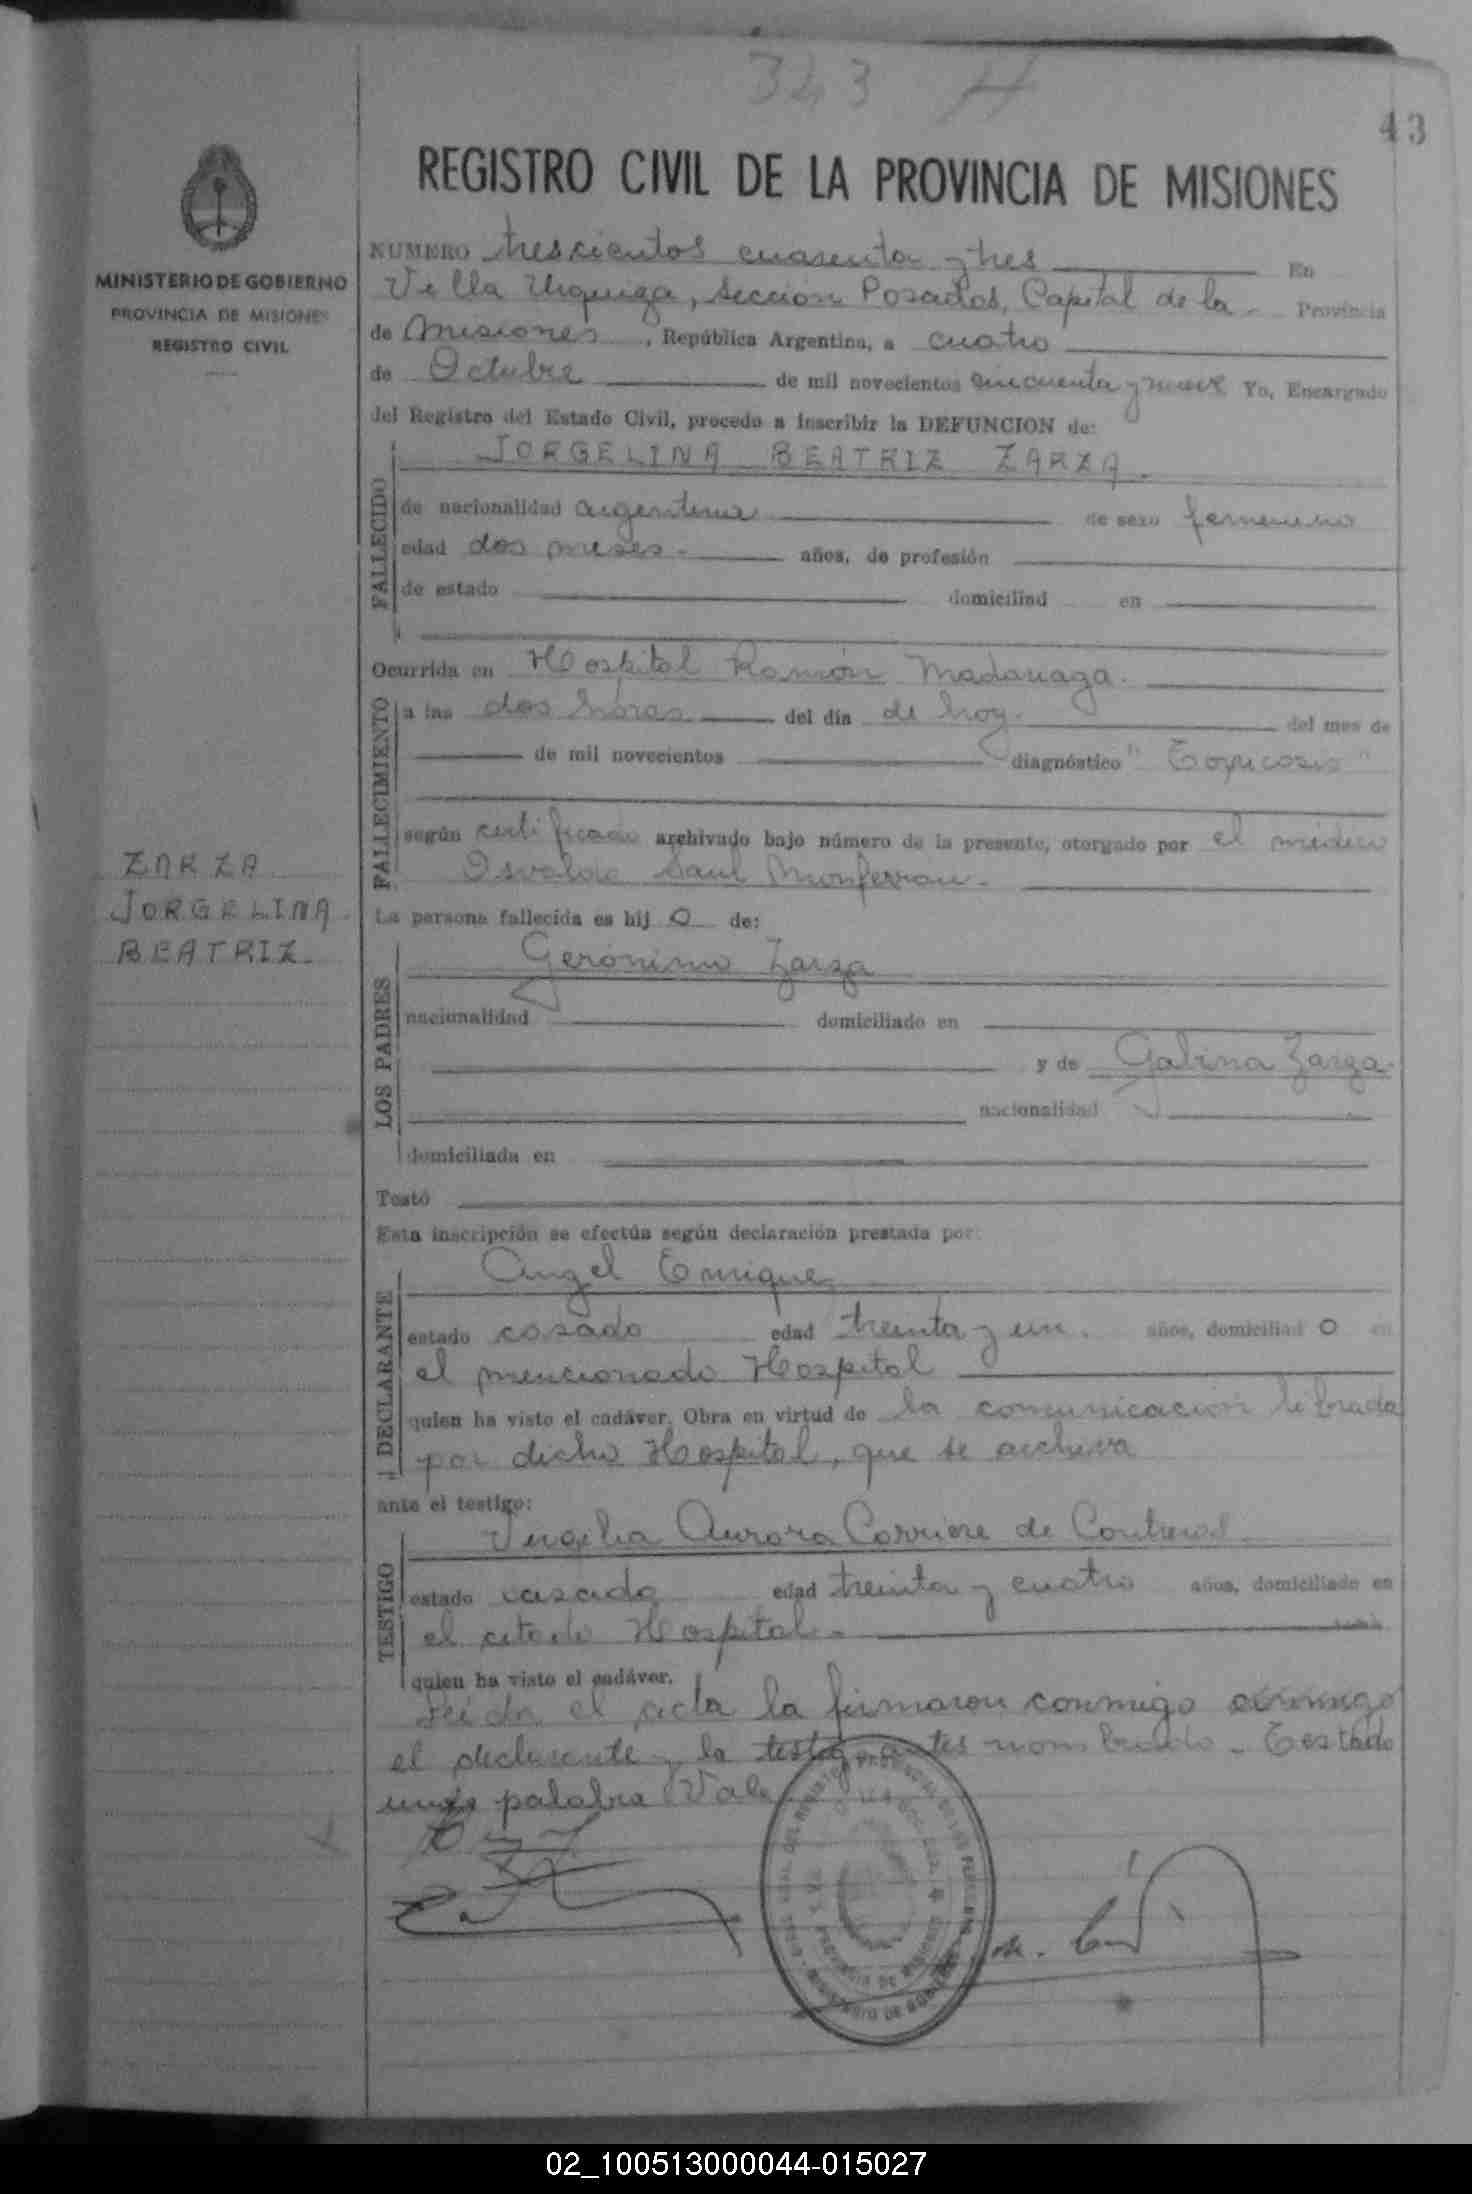 343
43
MINISTERIO DE GOBIERNO
PROVINCIA DE MISIONES
REGISTRO CIVIL
REGISTRO CIVIL DE LA PROVINCIA DE MISIONES
NUMERO trescientos cuarenta y tres En
Villa Urquiza, sección Posadas, Capital de la Provincia
de Misiones, República Argentina, a cuatro
de Octubre de mil novecientos cincuenta y nueve Yo, Encargado
del Registro del Estado Civil, procedo a inscribir la DEFUNCION de:
FALLECIDO
JORGELINA BEATRIZ ZARZA.
de nacionalidad argentina de sexo femenino
edad dos meses. años, de profesión
de estado domiciliad en
Ocurrida en Hospital Ramón Madariaga.
FALLECIMIENTO
a las dos horas del día de hoy. del mes de
de mil novecientos diagnóstico "Toxicosis"
según certificado archivado bajo número de la presente, otorgado por el médico
Osvaldo Saul Monferran.
ZARZA
JORGELINA
BEATRIZ.
La persona fallecida es hij o de:
LOS PADRES
Gerónimo Zarza
nacionalidad domiciliado en
y de Galina Zarza.
nacionalidad
domiciliada en
Testó
Esta inscripción se efectúa según declaración prestada por:
DECLARANTE
Angel Enrique
estado casado edad treinta y un. años, domiciliad o en
el mencionado Hospital
quien ha visto el cadáver. Obra en virtud de la comunicación librada
por dicho Hospital, que se archiva
ante el testigo:
TESTIGO
Virgilia Aurora Corriere de Contreras
estado casada edad treinta y cuatro años, domiciliado en
el citado Hospital.
quien ha visto el cadáver.
Leida el acta la firmaron conmigo
el declarante y la testigo antes nombrado. Testado
una palabra Vale
PROVINCIA DE MISIONES
MINISTERIO DE GOBIERNO
02_100513000044-015027